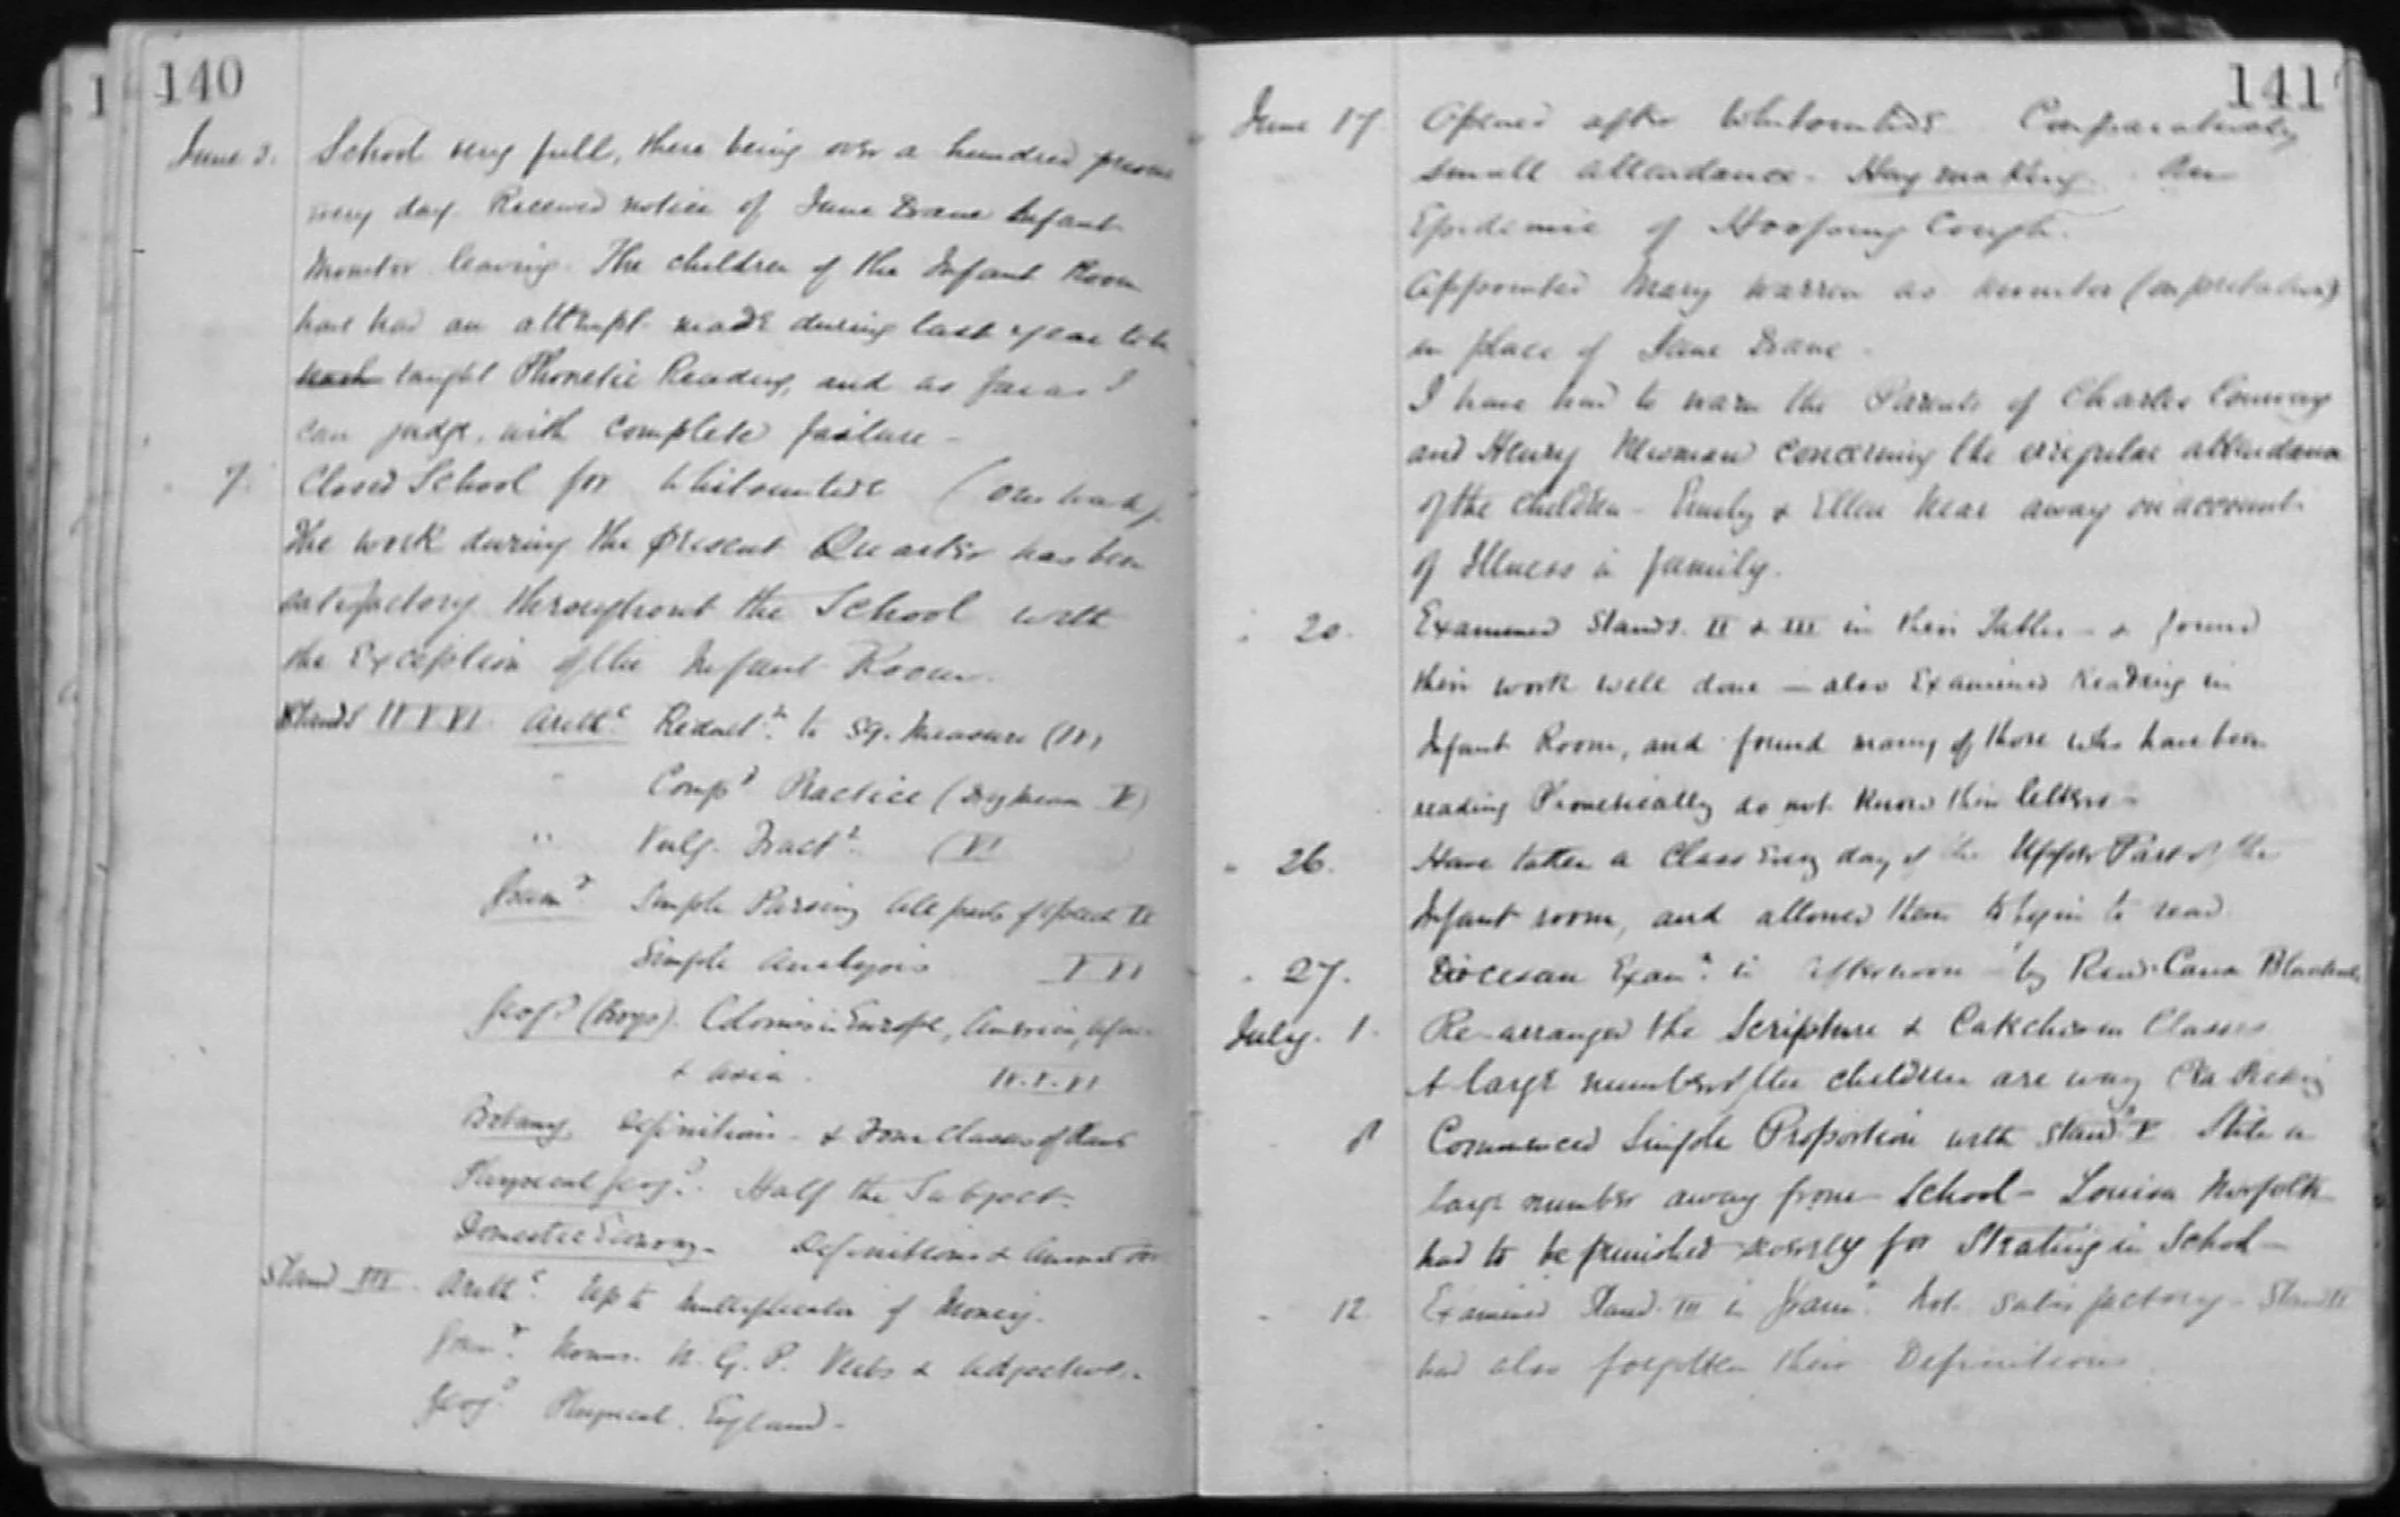 140
June 3. School very full, there being over a hundred present
every day. Received notice of Jane Drane Infant
Monitor leaving. The children of the Infant Room
have had an attempt made during last year to be
taught Phonetic Reading, and as far as I
can judge, with complete failure -
7. Closed School for Whitsuntide (one week).
The work during the present Quarter has been
satisfactory throughout the School with
the Exception of the Infant Room.
Stands IV V VI. Arithc. Reduct. to Sq. Measure (IV)
" Compd Practice (
" Vulg. Fract. (VI
Gramr Simple Parsing all parts of speech IV
Simple Analysis V VI
Geog. (Boys). Colonies in Europe, America, Africa
& Asia. IV. V. VI
Botany, Definitions - & Four Classes of
Physical Geog. Half the Subject.
Domestic Economy - Definitions &
Stand III. Arithc. Up to Multiplication of Money.
Gramr. Nouns. N. G. P. Verbs & Adjectives.
Geog. Physical. England -
141
June 17 Opened after Whitsuntide. Comparatively
small attendance. Haymaking. An
Epidemic of Hooping Cough.
Appointed Mary Warren as Monitor (on probation)
in place of Jane Drane -
I have had to warn the Parents of Charles Conway
and Henry Newman concerning the irregular attendance
of the children - Emily & Ellen away on account
of Illness in family.
" 20. Examined Stands. II & III in their Tables - & found
their work well done - also Examined Reading in
Infant Room, and found many of those who have been
reading Phonetically do not know their letters -
" 26. Have taken a Class Every day of the Upper Part of the
Infant room, and allowed them to begin to read.
" 27. Diocesan Examn. in afternoon - by Revd. Canon
July. 1. Re-arranged the Scripture & Catechism Classes
A large number of the children are away Pea Picking
8 Commenced Simple Proportion with Stand. V. Still a
large number away from School - Louisa Norfolk
had to be punished severely for Stealing in School -
" 12. Examined Stand. III in Gramr. Not satisfactory - Stand II
had also forgotten their Definitions